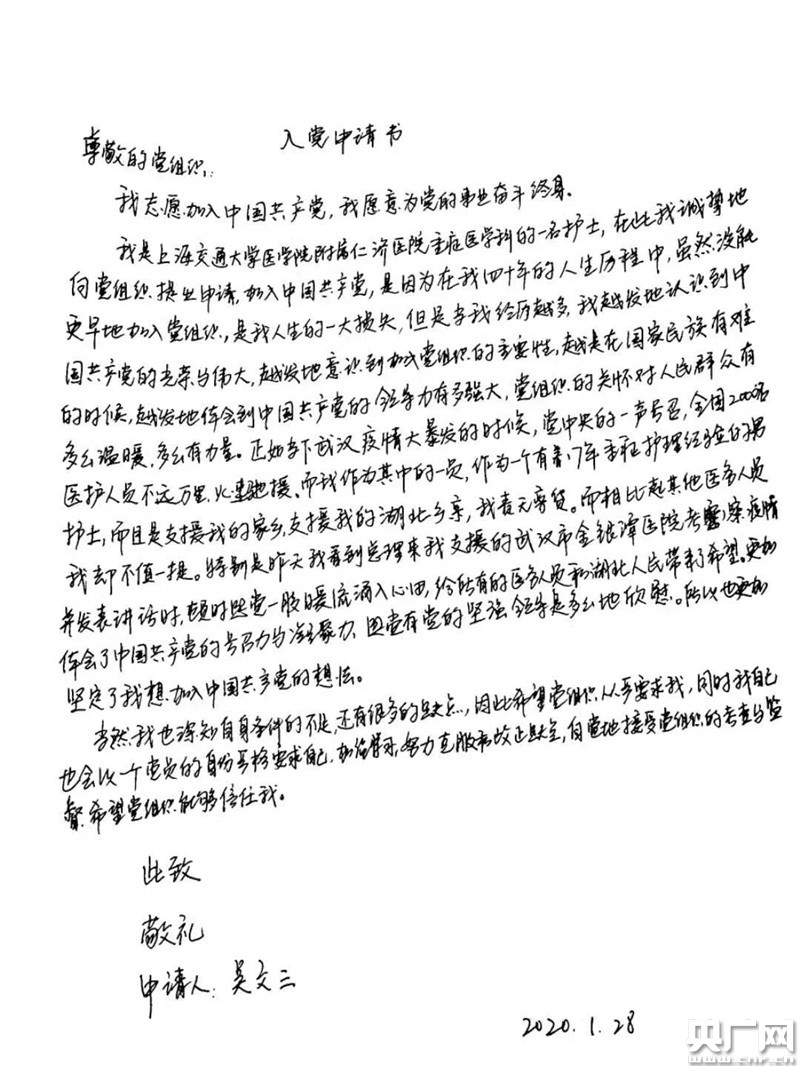 入党申请书
尊敬的党组织:
我志愿加入中国共产党,我愿意为党的事业奋斗终身。
我是上海交通大学医学院附属仁济医院重症医学科的一名护士,在此我诚挚地
向党组织提出申请,加入中国共产党,是因为在我四十年的人生历程中,虽然没能
更早地加入党组织,是我人生的一大损失,但是我经历越多,我越发地认识到中
国共产党的光荣与伟大,越发地意识到加入党组织的重要性,越是在国家民族有难
的时候,越发地体会到中国共产党的领导力有多强大,党组织的关怀对人民群众有
多么温暖,多么有力量。正如当下武汉疫情大暴发的时候,党中央的一声号召,全国2000名
医护人员不远万里,火速驰援。而我作为其中的一员,作为一个有着17年重症护理经验的男
护士,而且是支援我的家乡,支援我的湖北乡亲,我责无旁贷。而相比起其他医务人员
我却不值一提。特别是昨天我看到总理来我支援的武汉市金银潭医院考察疫情
并发表讲话时,顿时觉一股暖流涌入心田,给所有的医务人员和湖北人民带来了希望。更加
体会了中国共产党的号召力与凝聚力,有党的坚强领导是多么地欣慰。所以也更加
坚定了我想加入中国共产党的想法。
当然我也深知自身条件的不足,还有很多的缺点,因此希望党组织从严要求我,同时我自己
也会以一个党员的身份严格要求自己,加强学习,努力克服和改正缺点,自觉地接受党组织的考查与监
督。希望党组织能够信任我。
此致
敬礼
申请人:吴文三
2020.1.28
央广网
www.cnr.cn